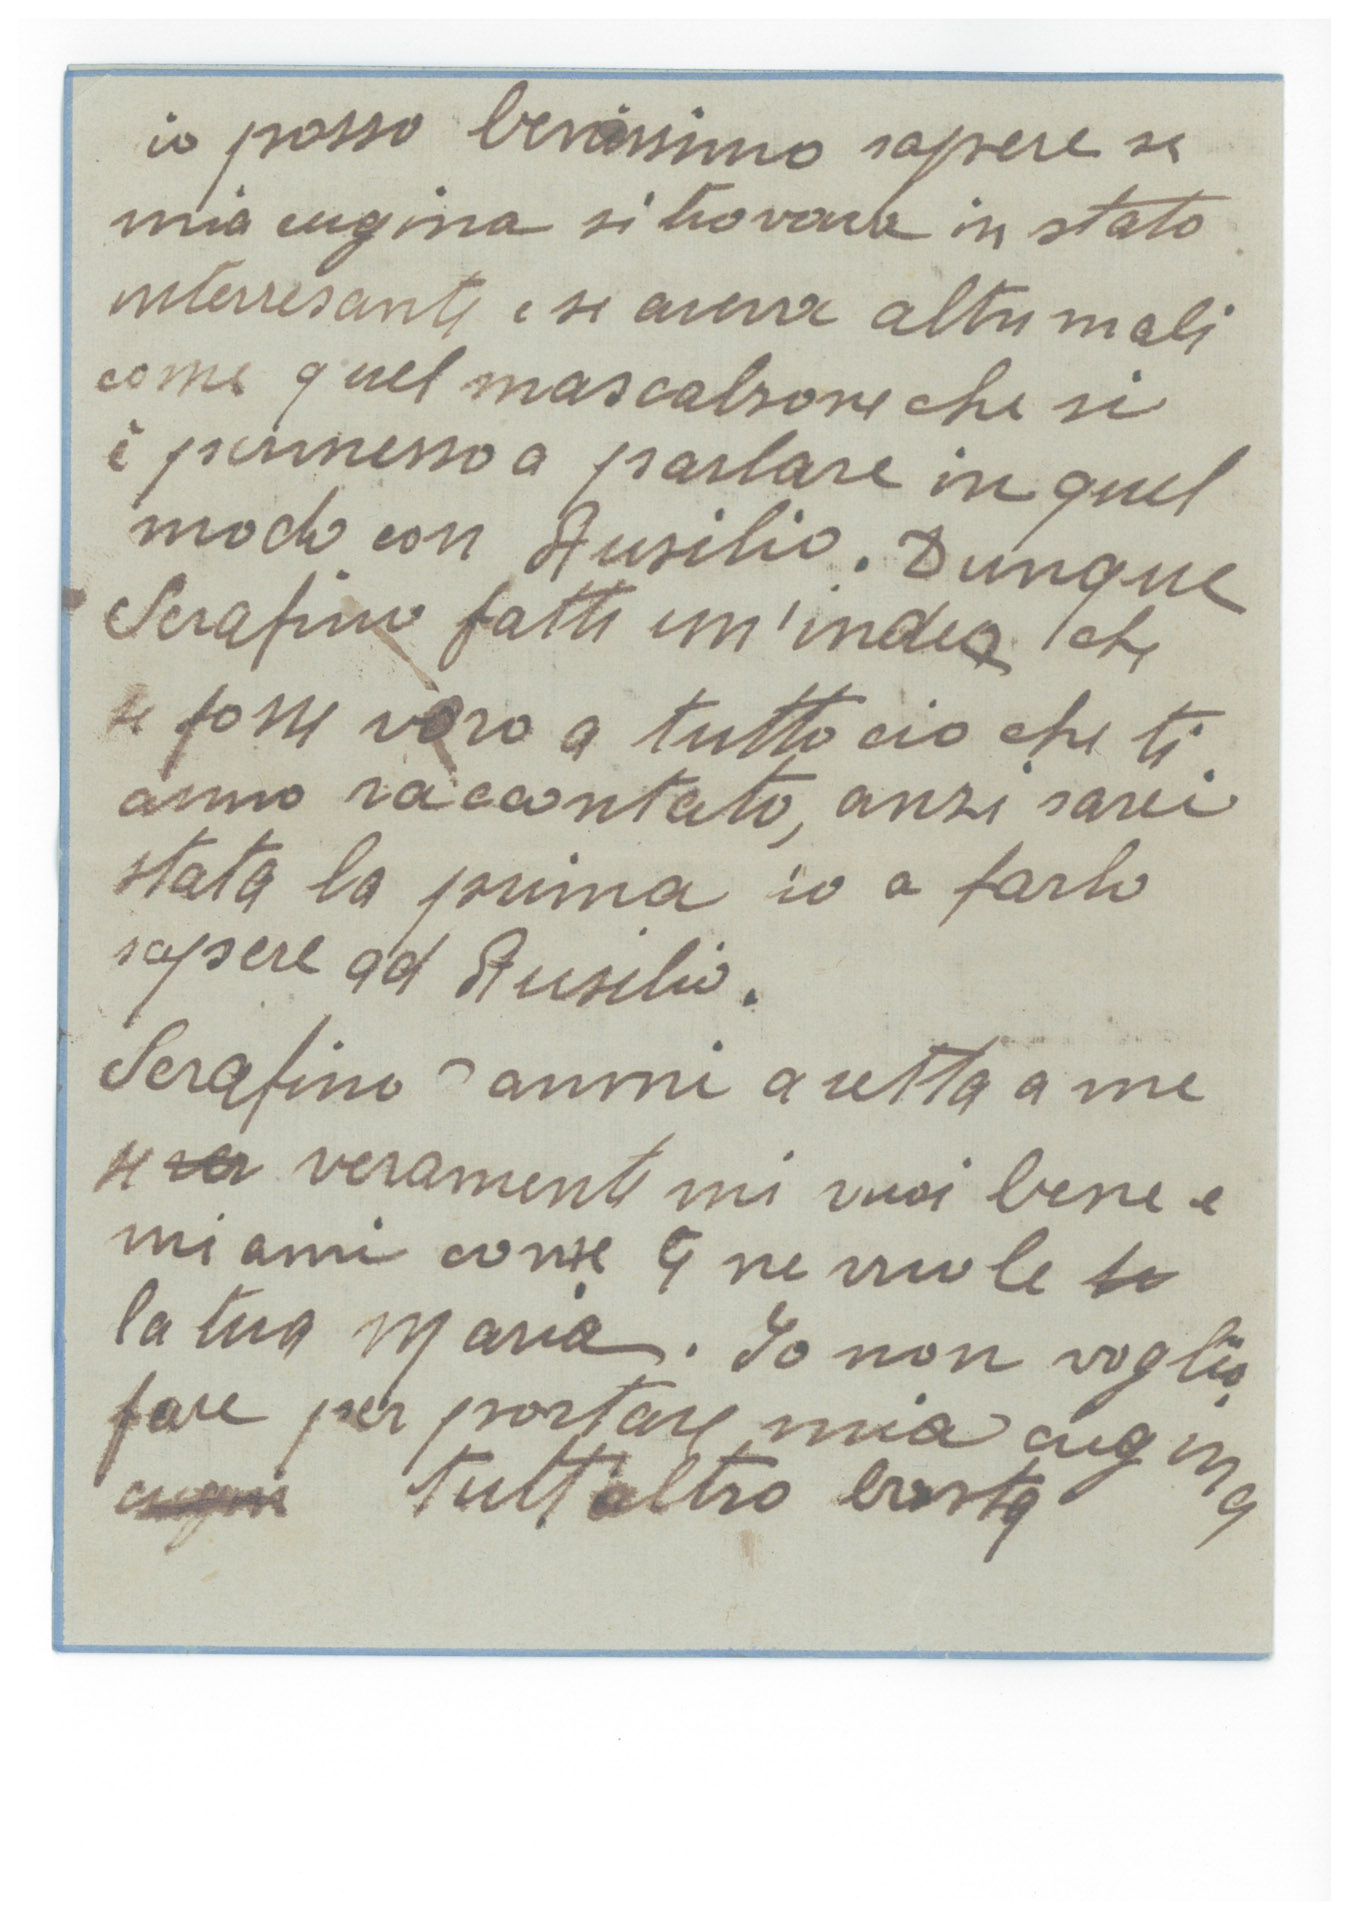 io posso benissimo sapere se
mia cugina si trovava in stato
interresante e se aveva altri mali
come quel mascalzone che si
è permesso a parlare in quel
modo con Ausilio. Dunque
Serafino fatti un'indea che
se fosse vero a tutto cio che ti
anno raccontato, anzi sarei
stata la prima io a farlo
sapere ad Ausilio.
Serafino anmi a retta a me
se veramente mi vuoi bene e
mi ami come ne vuole
la tua Maria. Io non voglio
fare per portare mia cugina
tutt'altro basta